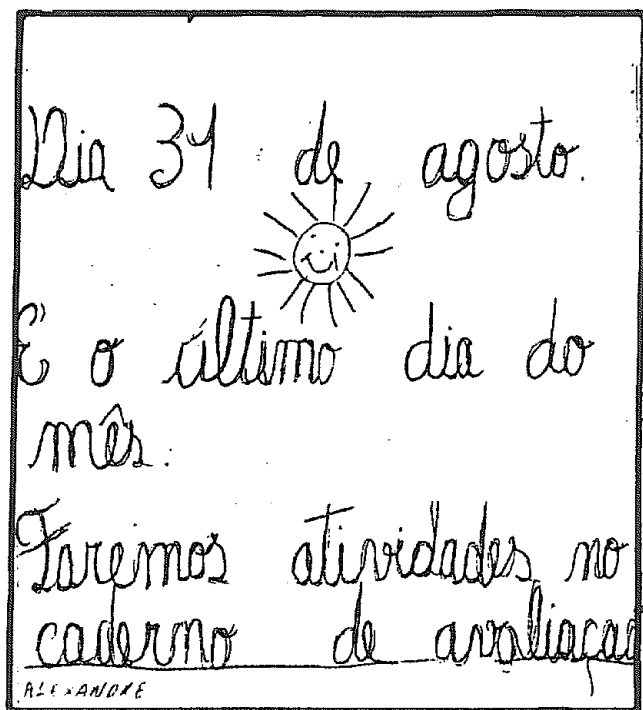 Dia 31 de agosto.
É o último dia do
mês.
Faremos atividades no
caderno de avaliação
ALEXANDRE